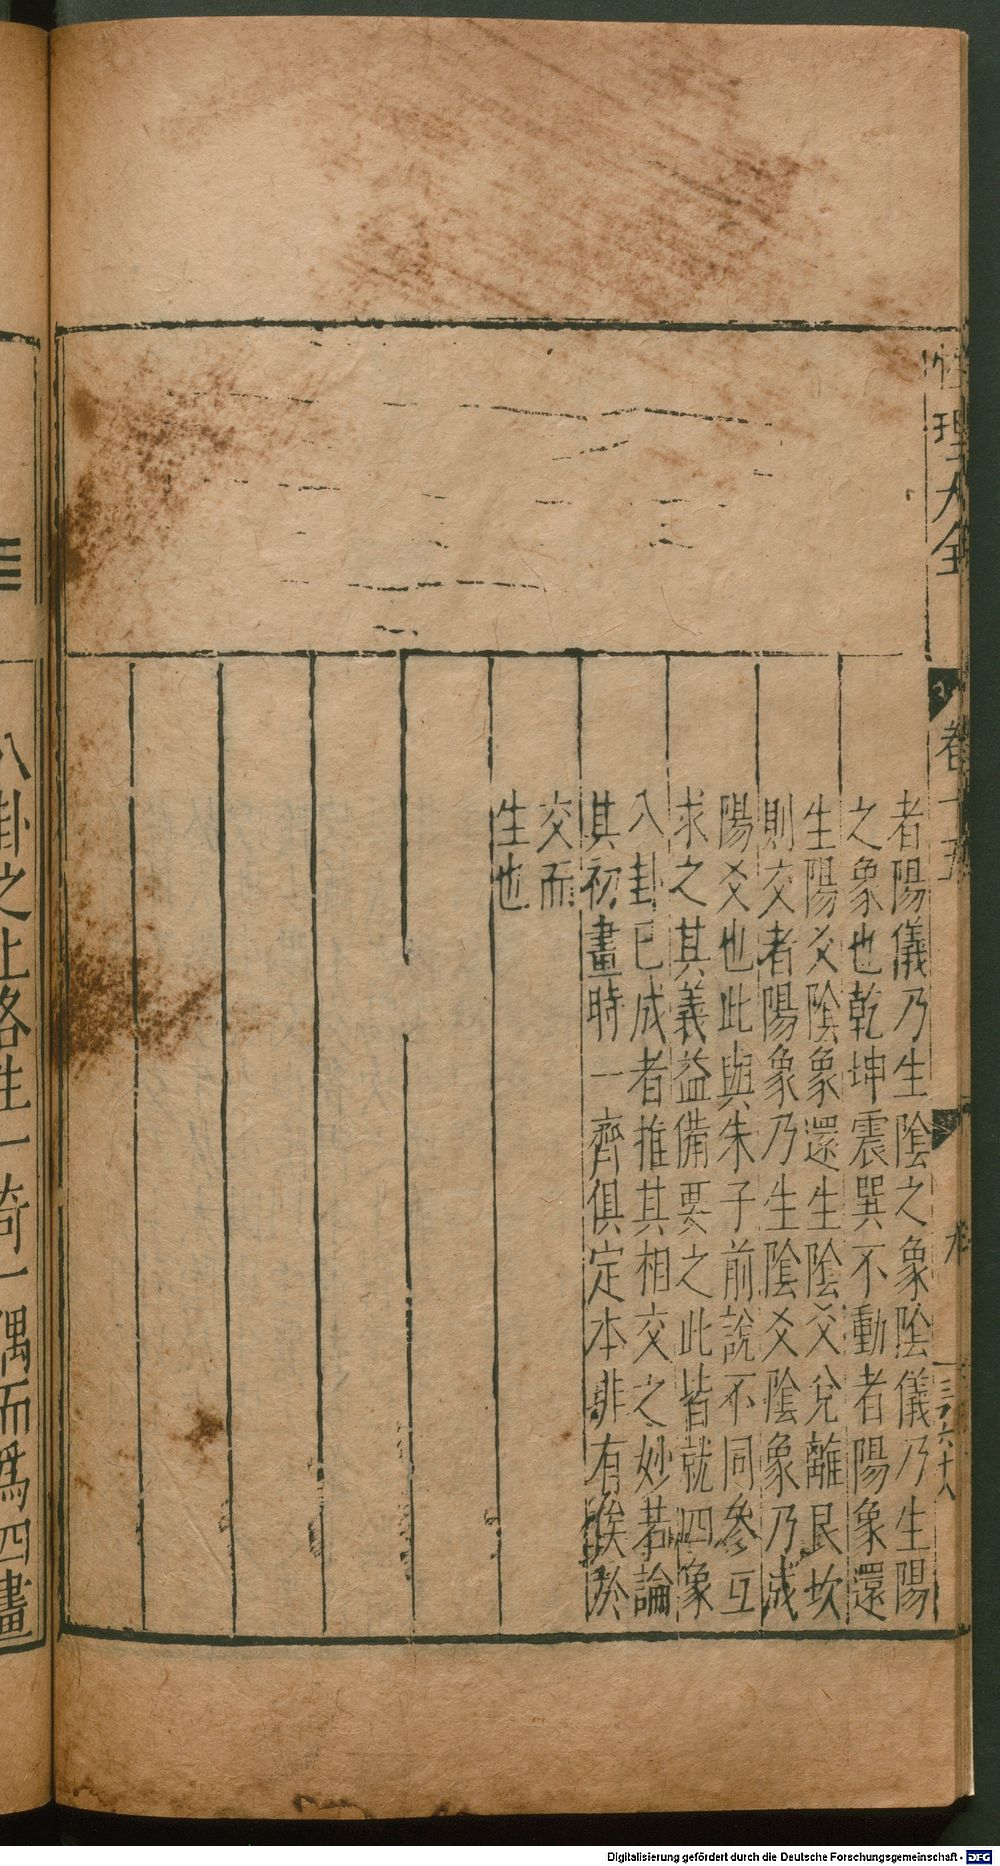 性理大全
卷十五
九
三千六十八
者陽儀乃生陰之象陰儀乃生陽
之象也乾坤震巽不動者陽象還
生陽爻陰象還生陰爻兌離艮坎
則交者陽象乃生陰爻陰象乃成
陽爻也此與朱子前說不同參互
求之其義益備要之此皆就四象
八卦已成者推其相交之妙若論
其初畫時一齊俱定本非有俟於
交而
生也
八卦之上各生一奇一偶而爲四畫
Digitalisierung gefördert durch die Deutsche Forschungsgemeinschaft - DFG